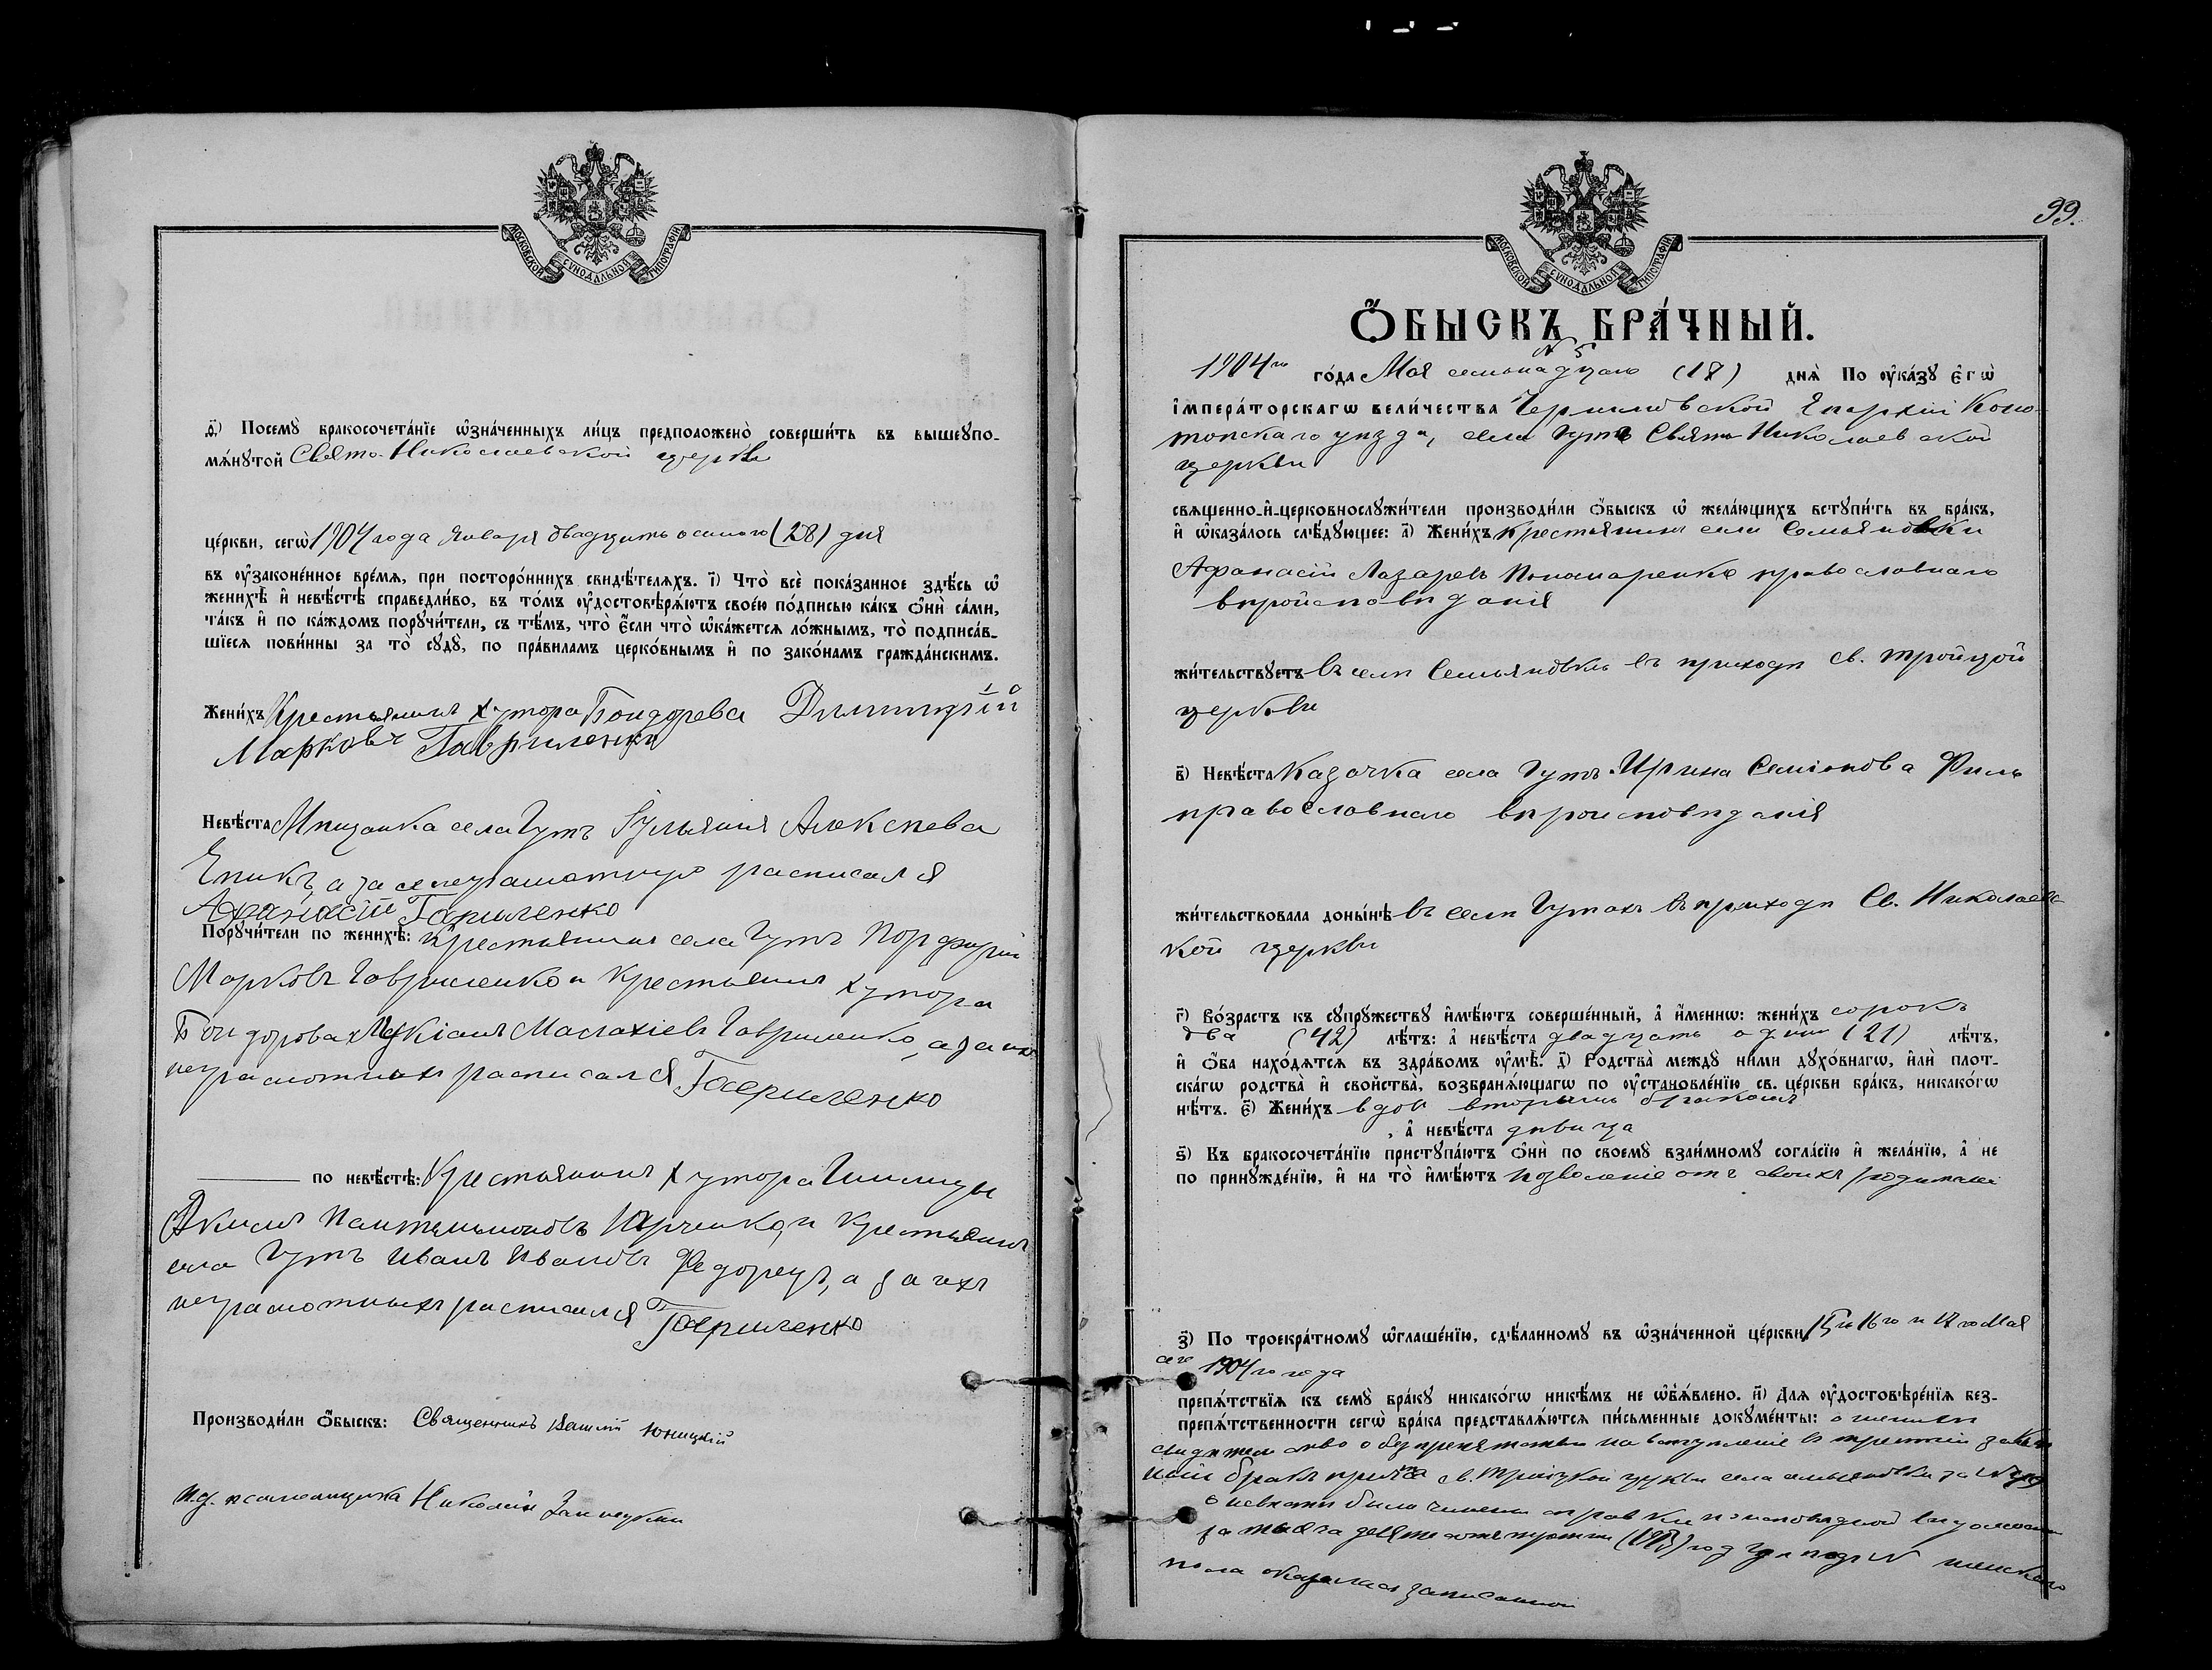 МОСКОВСКОЙ СѴНОДАЛЬНОЙ ТИПОГРАФІИ
ѳ҃) Посемꙋ̀ бракосочета́нїе ѡ҆зна́ченныхъ ли́цъ предположено̀ соверши́ть въ вышеꙋпо-
мѧ́нꙋтой Свято-Николаевской церкви
це́ркви, сегѡ̀ 1904 года Января двадцать осьмого (28) дня
въ ᲂу҆законе́нное вре́мѧ, при посторо́ннихъ свидѣ́телѧхъ. і҃) Что̀ всѐ пока́занное здѣ́сь ѡ҆
женихѣ̀ и҆ невѣ́стѣ справедли́во, въ то́мъ ᲂу҆достовѣрѧ́ютъ свое́ю по́дписью ка́къ ѻ҆нѝ са́ми,
та́къ и҆ по ка́ждомъ порꙋчи́тели, съ тѣ́мъ, что̀ є҆́сли что̀ ѡ҆ка́жетсѧ ло́жнымъ, то̀ подписа́в-
шїесѧ пови́нны за то̀ сꙋдꙋ̀, по пра́виламъ церко́внымъ и҆ по зако́намъ гражда́нскимъ.
Жени́хъ Крестьянинъ хутора Бондорева Димитрій
Марковъ Гавриленко
Невѣ́ста Мѣщанка села Гутъ Іульянія Алексѣева
Епикъ, а за ея неграмотную расписался
Афанасій Гавриленко
Порꙋчи́тели по женихѣ̀: Крестьянинъ села Гутъ Порфирій
Марковъ Гавриленко и крестьянинъ хутора
Бондорова Малахіевъ Гавриленко, а за ихъ
неграмотныхъ расписался Гавриленко
по невѣ́стѣ: Крестьянинъ хутора
Акимъ Пантелимоновъ и крестьянинъ
села Гутъ Иванъ Ивановъ Федорецъ, а за ихъ
неграмотныхъ расписался Гавриленко
Производи́ли ѻ҆́быскъ: Священникъ Юницкій
и.д. псаломщика Николай
99.
МОСКОВСКОЙ СѴНОДАЛЬНОЙ ТИПОГРАФІИ
Ѻ҆́БЫСКЪ БРА́ЧНЫЙ.
№ 5
1904 го го́да Мая семьнадцаго (18) днѧ̀ По ᲂу҆ка́зꙋ є҆гѡ̀
і҆мпера́торскагѡ вели́чества Черниговской Епархіи Коно-
топскаго уѣзда, села Гутъ Свято Николаевской
церкви
свѧщенно-и҆-церковнослꙋжи́тели производи́ли ѻ҆́быскъ ѡ҆ жела́ющихъ встꙋпи́ть въ бра́къ,
и҆ ѡ҆каза́лось слѣ́дꙋющее: а҃) Жени́хъ крестьянинъ села Семьяновки
Афанасій Лазаревъ Пономаренко православнаго
вѣроисповѣданія
жи́тельствꙋетъ въ селѣ Семьяновкѣ въ приходѣ св. Тройцкой
церкви
в҃) Невѣ́ста Казачка села Гутъ Ирина Семіонова Филь
православнаго вѣроисповѣданія
жи́тельствовала донынѣ̀ въ селѣ Гутахъ въ приходѣ Св. Николаевс
кой церкви
г҃) Во́зрастъ къ сꙋпрꙋ́жествꙋ и҆мѣ́ютъ соверше́нный, а҆ и҆́меннѡ: жени́хъ сорокъ
два (42) лѣ́тъ: а҆ невѣ́ста двадцать одинъ (21) лѣ́тъ,
и҆ ѻ҆́ба нахо́дѧтсѧ въ здра́вомъ ᲂу҆мѣ̀. д҃) Родства̀ междꙋ̀ ни́ми дꙋхо́внагѡ, и҆лѝ плот-
ска́гѡ родства̀ и҆ свойства̀, возбранѧ́ющагѡ по ᲂу҆становле́нїю св. це́ркви бра́къ, никако́гѡ
нѣ́тъ. є҃) Жени́хъ вдов вторымъ бракомъ
, а҆ невѣ́ста дѣвица
ѕ҃) Къ бракосочета́нїю пристꙋпа́ютъ ѻ҆нѝ по своемꙋ̀ взаи́мномꙋ согла́сїю и҆ жела́нїю, а҆ не
по принꙋжде́нїю, и҆ на то̀ и҆мѣ́ютъ позволеніе отъ своихъ родителей
з҃) По троекра́тномꙋ ѡ҆глаше́нїю, сдѣ́ланномꙋ въ ѡ҆зна́ченной це́ркви 15го 16го и 17го Мая
сего 1904 го года
препѧ́тствїѧ къ семꙋ̀ бра́кꙋ никако́гѡ никѣ́мъ не ѡ҆б̾ѧ́влено. и҃) Длѧ ᲂу҆достовѣре́нїѧ без-
препѧ́тственности сегѡ̀ бра́ка представлѧ́ютсѧ пи́сьменные докꙋме́нты: о женихѣ
свидѣтельство о безпрепятстви на вступленіе въ третій закон
ный бракъ причта св. Троицкой церкви села Семьяновки за №
о невѣстѣ справки исповѣдной вѣдомости
за тысяча девятьсотъ третій (1903) годъ гдѣ подъ № женскаго
пола оказалась записанной